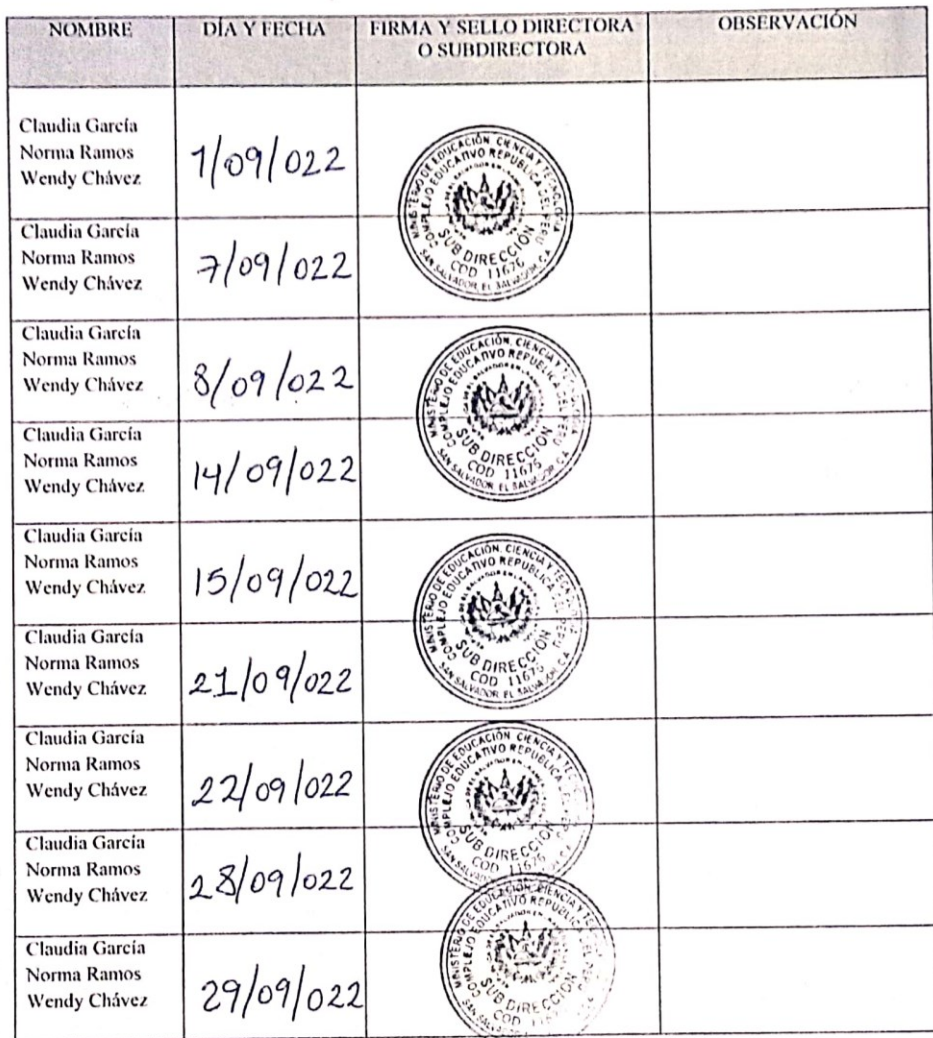 NOMBRE DÍA Y FECHA FIRMA Y SELLO DIRECTORA OBSERVACIÓN
O SUBDIRECTORA
Claudia García
Norma Ramos
Wendy Chávez
1/09/022
MINISTERIO DE EDUCACIÓN, CIENCIA Y TECNOLOGÍA
COMPLEJO EDUCATIVO REPUBLICA DEL PERU
SUB DIRECCIÓN
COD 11676
SAN SALVADOR, EL SALVADOR, C.A.
Claudia García
Norma Ramos
Wendy Chávez
7/09/022
Claudia García
Norma Ramos
Wendy Chávez
8/09/022
MINISTERIO DE EDUCACIÓN, CIENCIA Y TECNOLOGIA
COMPLEJO EDUCATIVO REPUBLICA DEL PERU
SUB DIRECCIÓN
COD 11676
SAN SALVADOR, EL SALVADOR, C.A.
Claudia García
Norma Ramos
Wendy Chávez
14/09/022
Claudia García
Norma Ramos
Wendy Chávez
15/09/022
MINISTERIO DE EDUCACIÓN, CIENCIA Y TECNOLOGIA
COMPLEJO EDUCATIVO REPUBLICA DEL PERU
SUB DIRECCIÓN
COD 11676
SAN SALVADOR, EL SALVADOR, C.A.
Claudia García
Norma Ramos
Wendy Chávez
21/09/022
Claudia García
Norma Ramos
Wendy Chávez
22/09/022
MINISTERIO DE EDUCACIÓN, CIENCIA Y
COMPLEJO EDUCATIVO REPUBLICA DEL PERU
SUB DIRECCIÓN
COD 11676
Claudia García
Norma Ramos
Wendy Chávez
28/09/022
MINISTERIO DE EDUCACIÓN, CIENCIA Y
COMPLEJO EDUCATIVO REPUBLICA DEL
SUB DIRECCIÓN
COD
Claudia García
Norma Ramos
Wendy Chávez
29/09/022